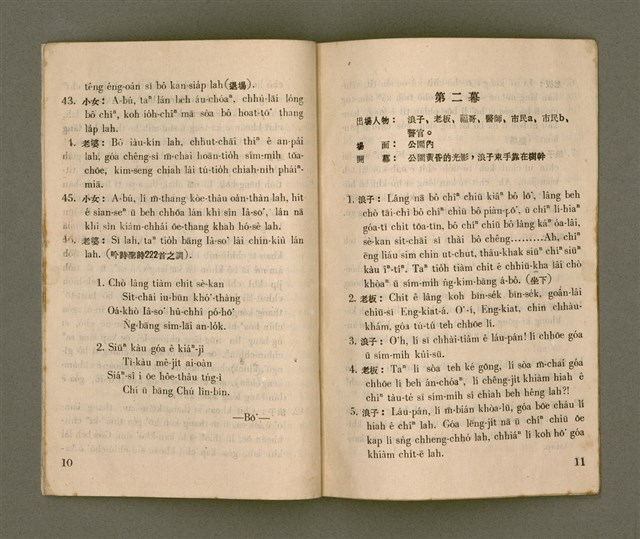 têng éng-oán sī bô kan-sia̍p lah (退場).
43. 小女： A-bú, taⁿ lán beh án-chóaⁿ, chhù-lāi lóng
bô chîⁿ, koh io̍h-chîⁿ mā sòa bô hoat-tō͘ thang
la̍p lah.
4. 老婆： Bô iàu-kín lah, chhut-chāi thiⁿ ê an-pâi
lah, góa chêng-sì m̄-chai hoān-tio̍h sím-mi̍h tōa-
chōe, kim-seng chiah lâi tú-tio̍h chiah-nih pháiⁿ-
miā.
45. 小女： A-bú, lí m̄-thang kòe-thâu oàn-thàn lah, hit
ê sian-seⁿ ū beh chhōa lán khì sìn Iâ-so͘, lán nā
khì sìn kiám-chhái ōe-thang khah hó-sè lah.
46. 老婆： Sī lah, taⁿ tio̍h bāng Iâ-so͘ lâi chín-kiù lán
lah. (吟時聖詩222首之調).
1. Chò lâng tiàm chit sè-kan
Sit-chāi iu-būn khó͘-thàng
Oá-khò Iâ-so͘ hû-chhî pó-hō͘
Ǹg-bāng sim-lāi an-lo̍k.
2. Siūⁿ kàu góa ê kiáⁿ-jî
Tì-kàu mê-ji̍t ai-oàn
Siáⁿ-sî i ōe hôe-thâu tńg-ì
Chí ū bāng Chú lîn-bín.
—Bō͘—
10
第二幕
出場人物： 浪子、老板、福哥、醫師、市民a、市民b、
警官。
場　　面： 公園內
開　　幕： 公園黃昏的光影，浪子束手靠在樹幹
1. 浪子： Lâng nā bô chîⁿ chiū kiāⁿ bô lō͘, lâng beh
chò tāi-chì bô chîⁿ chiū bô piàn-pō͘, ū chîⁿ lí-hiaⁿ
góa-tī chi̍t tōa-tīn, bô chîⁿ chiū bô lâng káⁿ óa-lâi,
sè-kan sit-chāi sī thài bô chêng………Ah, chîⁿ
êng liáu sim chin ut-chut, thâu-khak siūⁿ chîⁿ siūⁿ
kàu īⁿ-tīⁿ. Taⁿ tio̍h tiàm chit ê chhiū-kha lâi chò
khòaⁿ ū sím-mih ǹg-kim-bāng á-bô. (坐下)
2. 老板： Chit ê lâng koh bīn-se̍k bīn-se̍k, goân-lâi
chiū-sī Eng-kiat-á. O͘-í, Eng-kiat, chin chhàu-
khám, góa tú-tú teh chhōe lí.
3. 浪子： O͘h, lí sī chhài-tiàm ê láu-pán! lí chhōe góa
ū sím-mih kúi-sū.
4. 老板： Taⁿ lí sòa teh ké gōng, lí sòa m̄-chai góa
chhōe lí beh án-chóaⁿ, lí chêng-ji̍t khiàm hiah ê
chîⁿ tàu-té sī sím-mih sî chiah beh hêng lah?!
5. 浪子： Láu-pán, lí m̄-bián khòa-lū, góa bōe cháu lí
hiah ê chîⁿ lah. Góa lēng-ji̍t nā ū chîⁿ chiū ōe
kap lí sǹg chheng-chhó lah, chhiáⁿ lí koh hō͘ góa
khiàm chit-ē lah.
11